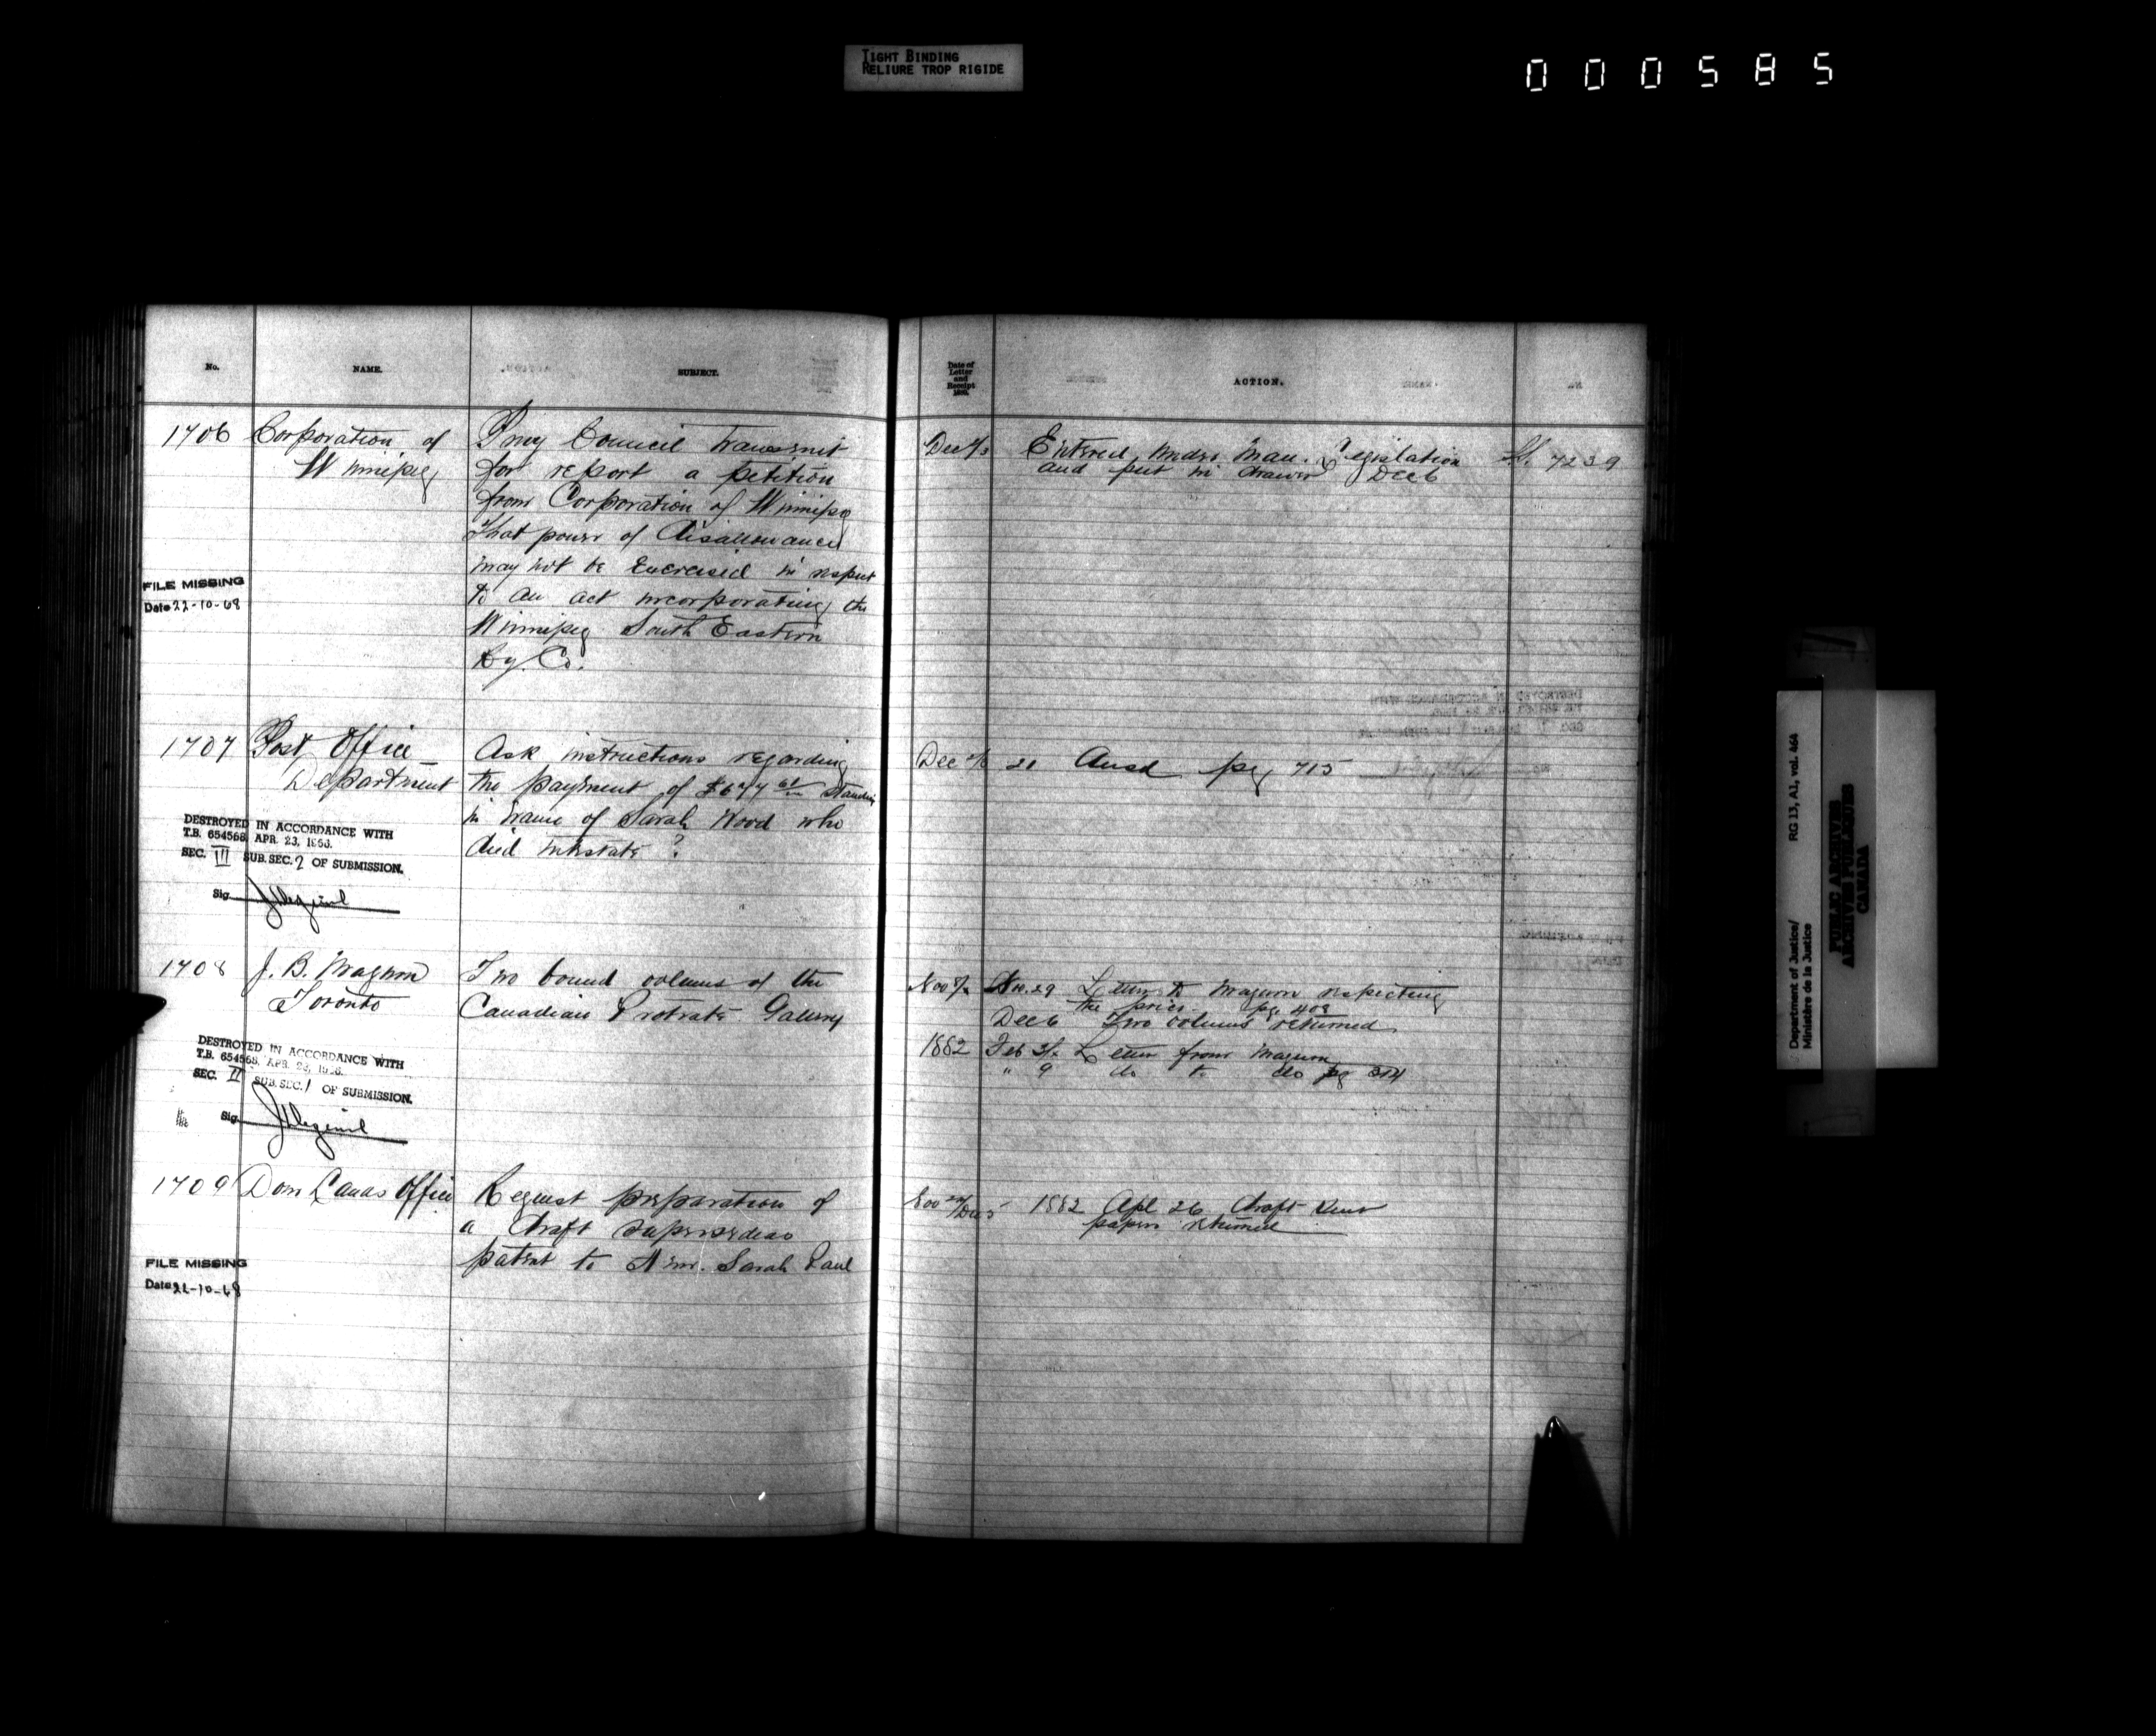 TIGHT BINDING
RELIURE TROP RIGIDE
000585
No.
NAME.
SUBJECT.
Date of
Letter
and
Receipt
ACTION.
1706
Corporation of
Winnipeg
Privy Council transmit
for report a petition
from Corporation of Winnipeg
that power of disallowance
may not be exercised in respect
to an act incorporating the
Winnipeg South Eastern
Ry. Co.
Dec
Entered under Man. Legislation
and put in drawer Dec 6
7239
FILE MISSING
Date 22-10-68
1707
Post Office
Department
Ask instructions regarding
the payment of $677 standing
in name of Sarah Wood who
died intestate ?
Dec
21 Ansd pg 715
DESTROYED IN ACCORDANCE WITH
T.B. 654568 APR. 23, 1966.
SEC. III SUB. SEC. 2 OF SUBMISSION.
Sig.
1708
J. B. Magurn
Toronto
Two bound volumes of the
Canadian Protrate Gallery
Nov
Nov. 29 Letter to Magurn respecting
the price. pg 408
Dec 6 Two volumes returned
1882 Feb Letter from Magurn
" 9 do to do pg 314
DESTROYED IN ACCORDANCE WITH
T.B. 654568. APR. 23, 1966.
SEC. II SUB. SEC. 1 OF SUBMISSION.
Sig.
1709
Dom Lands Office
Request preparation of
a draft supersedeas
patent to Sarah Paul
Nov Dec 5
1882 Apl 26 Draft
papers returned
FILE MISSING
Date 22-10-68
Department of Justice/
Ministère de la Justice
RG 13, A1, vol. 464
PUBLIC ARCHIVES
ARCHIVES PUBLIQUES
CANADA